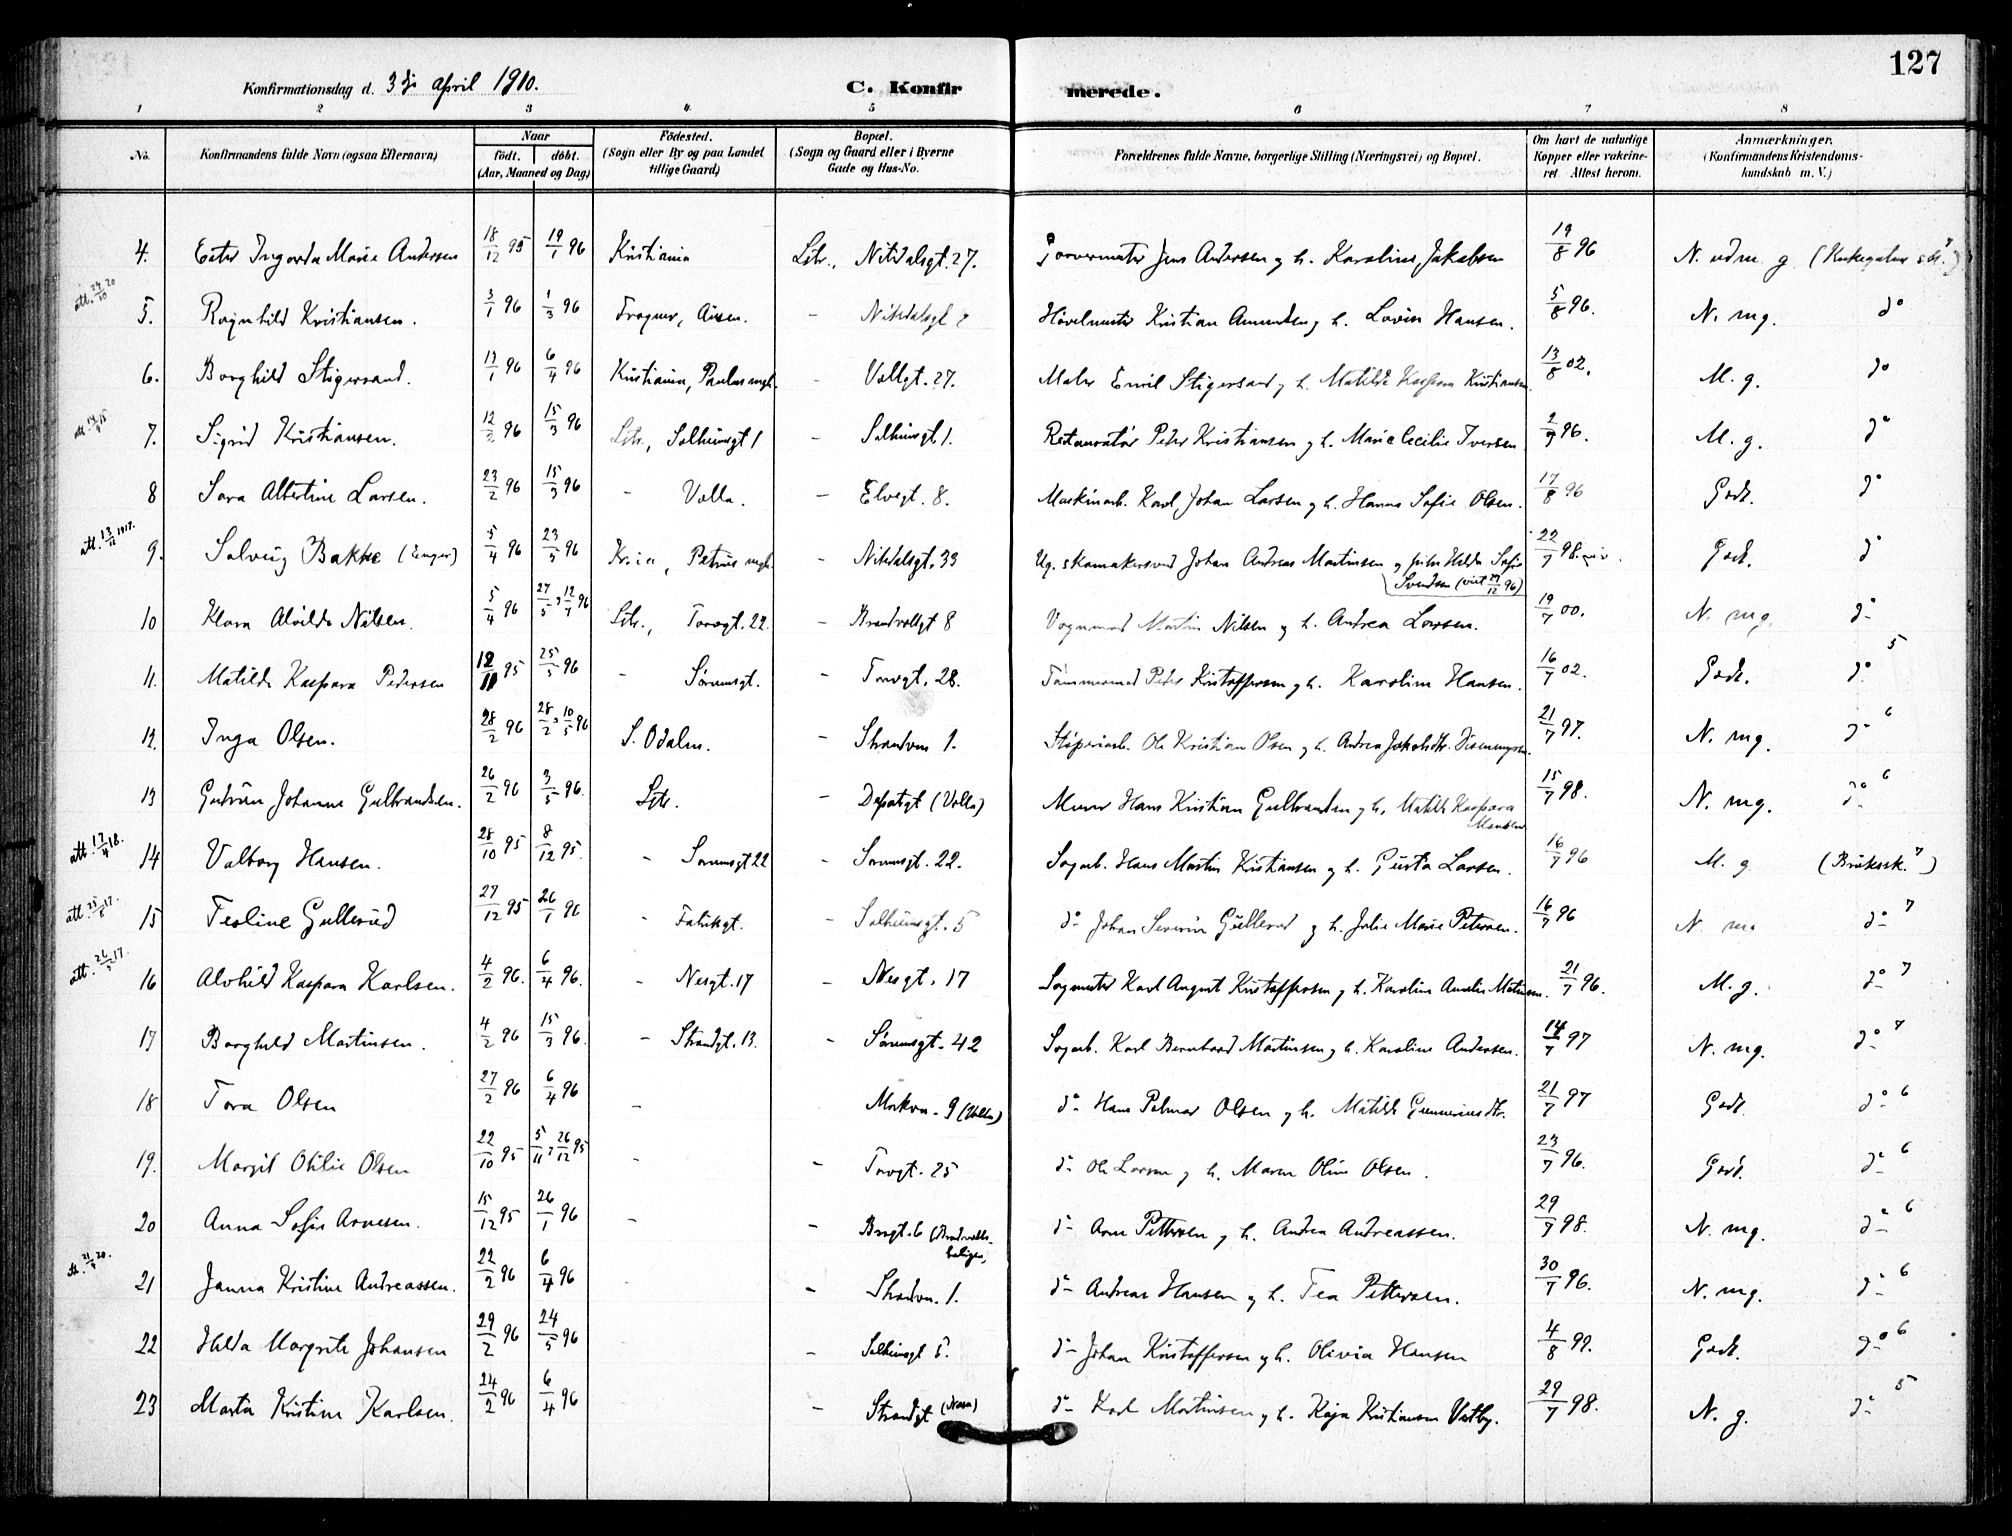 127
Konfirmationsdag d. 3dje April 1910.
C. Konfirmerede.
1 2 3 4 5 6 7 8
No.
Konfirmandens fulde Navn (ogsaa Efternavn)
Naar
født. døbt.
(Aar, Maaned og Dag)
Fødested.
(Sogn eller By og paa Landet
tillige Gaard)
Bopæl.
(Sogn og Gaard eller i Byerne
Gade og Hus-No.
Forældrenes fulde Navne, borgerlige Stilling (Næringsvei) og Bopæl.
Om havt de naturlige
Kopper eller vakcine-
ret Attest herom.
Anmærkninger.
(Konfirmandens Kristendoms-
kundskab m. V.)
4. Ester Ingarda Marie Andersen 18/12 95 19/1 96 Kristiania Lstr., Nitedalsgt. 27. Jens Andersen og h. Karoline Jakobsen 19/8 96 N. udm. g.
att. 24/10 20
5. Ragnhild Kristiansen. 3/1 96 1/3 96 Frogner, - Nitedalsgt Høvelmester Kristian Amundsen og h. Lovise Hansen. 5/8 96. N. mg. do
6. Borghild Stigersand. 13/1 96 6/4 96 Kristiania, Paulus mgh. - Vollgt. 27. Maler Emil Stigersand og h. Matilde Kaspara Kristiansen 13/8 02. M. g. do
7. Sigrid Kristiansen. 12/2 96 15/3 96 Lstr., Solheimsgt 1 - Solheimsgt 1. Restauratør Peter Kristiansen og h. Marie Cecilie Iversen 2/9 96. M. g. do
8 Sara Albertine Larsen. 23/2 96 15/3 96 - Volla. - Elvegt. 8. Maskinarb. Karl Johan Larsen og h. Hanna Sofie Olsen. 17/8 96 Godt. do
att. 13/12 1917.
9. Solveig Bakke (Unger) 5/4 96 23/5 96 Kr.ia, Petrus mgh. - Nitedalsgt. 33 Ug. skomakersvend Johan Andreas Martinsen og pike Hilda Sofie
Svendsen (viet 27/12 96) 22/7 98. Godt. do
10 Klara Alvilde Nilsen. 5/4 96 27/5, 12/7 96 Lstr., Torvgt. 22. - Brandvollgt 8 Vognmand Martin Nilsen og h. Andrea Larsen. 19/7 00. N. mg. do
11. Matilde Kaspara Pedersen 12/11 95 25/5 96 - Sørumsgt. - Torvgt. 28. Tømmermand Peter Kristoffersen og h. Karoline Hansen. 16/7 02. Godt. do 5
12. Inga Olsen. 28/2 96 28/2, 10/5 96 S. Odalen. - Strandvn 1. Støperiarb. Ole Kristian Olsen og h. Andrea Jakobsdtr. Disenmyren. 21/7 97. N. mg. do 6
13 Gudrun Johanne Gulbrandsen. 26/2 96 3/5 96. Lstr. - Depotgt (Volla) Murer Hans Kristian Gulbrandsen og h. Matilde Kaspara
15/7 98. N. mg. do 6
att. 17/4 18.
14 Valborg Hansen. 28/10 95 8/12 95. - Sørumsgt 22 - Sørumsgt. 22. Sagarb. Hans Martin Kristiansen og h. Gusta Larsen. 16/7 96 M. g (Bruksssk. 7)
att. 25/8 17.
15 Teoline Gullerud 27/12 95 26/1 96 - Fabrikgt. - Solheimsgt. 5 do Johan Severin Gullerud og h. Julie Marie Petersen. 16/7 96 N. mg do 7
att. 26/3 17.
16 Alvhild Kaspara Karlsen. 4/2 96. 6/4 96. - Nesgt. 17 - Nesgt. 17 Sagmester Karl August Kristoffersen og h. Karoline Amalie 21/7 96. M. g. do 7
17 Borghild Martinsen. 4/2 96 15/3 96. - Strandgt. 13. - Sørumsgt. 42 Sagarb. Karl Bernhard Martinsen og h. Karoline Andersen. 14/7 97 N. mg. do 7
18 Tora Olsen 27/2 96 6/4 96 - 9 (Volla) do Hans Palmar Olsen og h. Matilde Gunneriusdtr. 21/7 97 Godt. do 6
19. Margit Otilie Olsen 22/10 95 5/11, 26/12 95 - - Torvgt. 25 do Ole Larsen og h. Maren Oline Olsen. 23/7 96. Godt. do 6
20 Anna Sofie Arnesen. 15/12 95 26/1 96 - - 6 do Arne Pettersen og h. Andrea Andreassen. 29/7 98. N. mg. do 6
21 Janna Kristine Andreassen. 22/2 96 6/4 96 - Strandvn. 1. do Andreas Hansen og h. Tea Pettersen. 30/7 96. N. mg. do 6
22 Hilda Margrete Johansen 29/2 96 24/5 96 - Solheimsgt 5. do Johan Kristoffersen og h. Olivia Hansen 4/8 99. Godt. do 6
23 Marta Kristine Karlsen. 24/2 96 6/4 96 - Strandgt do Karl Martinsen og h. Kaja Kristiansen Vestby. 29/7 98. N. g. do 5